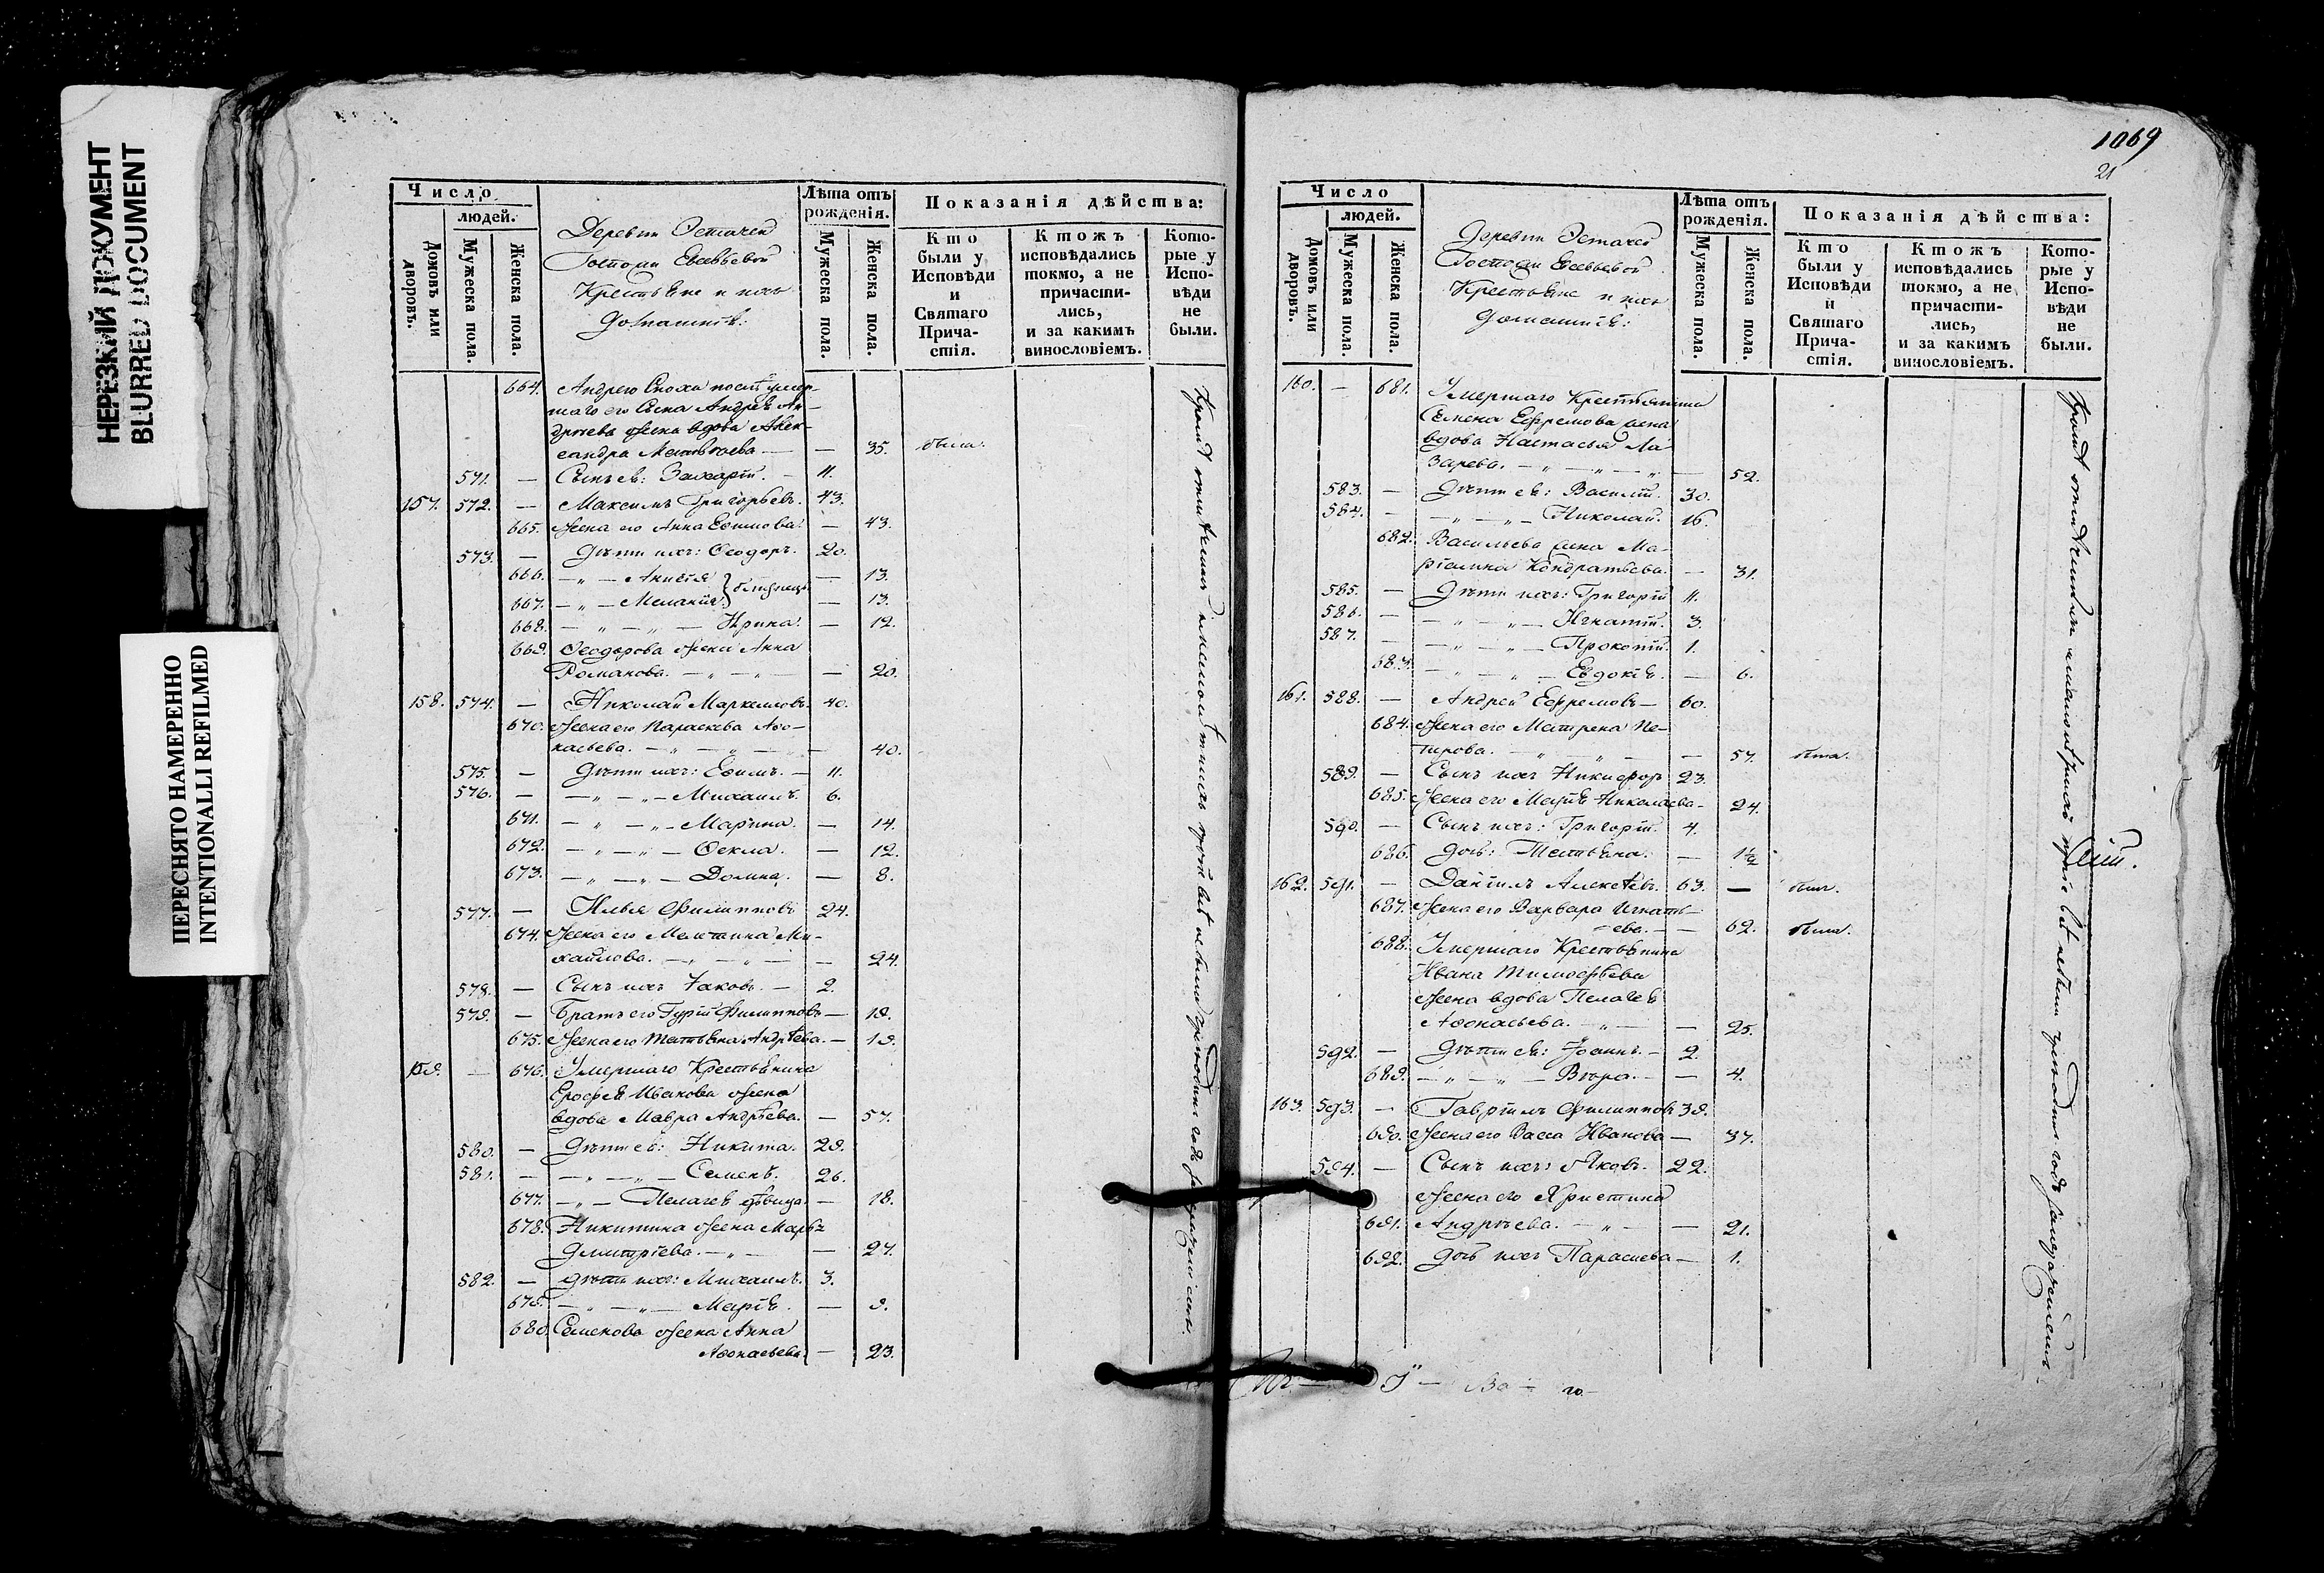 НЕРЕЗКИЙ ДОКУМЕНТ
BLURRED DOCUMENT
ПЕРЕСНЯТО НАМЕРЕННО
INTENTIONALLI REFILMED
Число
людей.
Домовъ или дворовъ.
Мужеска пола.
Женска пола.
Деревни
Госпожи
Крестьяне и ихъ
домашнiе:
Лѣта отъ рожденiя.
Мужеска пола.
Женска пола.
Показанiя дѣйства:
Кто были у Исповѣди и Святаго Причастiя.
Ктожъ исповѣдались токмо, а не причастились, и за какимъ винословiемъ.
Которые у Исповѣди не были.
664. Андрею Снохи послѣ умер-
шаго его Сына Андрея Ан-
дреева жена вдова Алек-
сандра Матвѣева — — 35. была.
571. — Сынъ ея: Захарiй. — 11.
157. 572. — Максимъ Григорьевъ. 43.
665. Жена его Анна Ефимова. — 43.
573. — Дѣти ихъ: Ѳеодоръ. 20.
666. — „ — Анисiя — 13.
667. — „ — Меланiя — 13.
668. — „ — „ — Ирина. — 12.
669. Ѳеодорова жена Анна
Романова. — „ — „ — — 20.
158. 574. — Николай Маркелловъ. 40.
670. Жена его Параскева Аѳо-
насьева. — „ — „ — — 40.
575. — Дѣти ихъ: Ефимъ. — 11.
576. — — „ — „ — Михаилъ. 6.
671. — „ — „ — Марина. — 14.
672. — „ — „ — Ѳекла. — 12.
673. — „ — „ — Домна. — 8.
577. — Илья Филипповъ 24.
674. Жена его Мелитина Ми-
хайлова. — „ — „ — — 24.
578. — Сынъ ихъ Iаковъ. — 2.
579. — Братъ его Гурiй Филипповъ — 19.
675. Жена его Татьяна Андрѣева. — 19.
159. — 676. Умершаго Крестьянина
Ерофея Иванова жена
вдова Мавра Андрѣева. — 57.
580. — Дѣти ея: Никита. 29.
581. — — „ — „ — Семенъ. 26.
677. — „ — Пелагея дѣвица. — 18.
678. Никитина жена Марья
Дмитрiева. — „ — — 27.
582. — Дѣти ихъ: Михаилъ. 3.
679. — „ — „ — Марiя. — 9.
680. Семенова жена Анна
Аѳонасьева. — 23.
1069
21
Число
людей.
Домовъ или дворовъ.
Мужеска пола.
Женска пола.
Деревни
Госпожи
Крестьяне и ихъ
домашнiе:
Лѣта отъ рожденiя.
Мужеска пола.
Женска пола.
Показанiя дѣйства:
Кто были у Исповѣди и Святаго Причастiя.
Ктожъ исповѣдались токмо, а не причастились, и за какимъ винословiемъ.
Которые у Исповѣди не были.
160. — 681. Умершаго Крестьянина
Семена Ефремова жена
вдова Настасья Ла-
зарева. — „ — „ — „ — 52.
583. — Дѣти ея: Василiй. 30.
584. — — „ — „ — Николай. 16.
682. Васильева жена Ма-
рiамна Кондратьева. — 31.
585. — Дѣти ихъ: Григорiй 11.
586. — — „ — „ — Игнатiй. 3.
587. — — „ — „ — Прокопiй. 1.
683. — „ — „ — Евдокiя. — 6.
161. 588. — Андрей Ефремовъ — 60.
684. Жена его Матрена Пе-
трова. — „ — „ — — 57. была.
589. — Сынъ ихъ Никифоръ 23.
685. Жена его Марiя Николаева — 24.
590. — Сынъ ихъ: Григорiй. 4.
686. Дочь: Татьяна. — 1½
162. 591. — Данiилъ Алексѣевъ. 63. — былъ.
687. Жена его Варвара Игнать-
ева. — — 62. была.
688. Умершаго Крестьянина
Ивана Тимофѣева
жена вдова Пелагея
Аѳонасьева. — „ — — 25.
592. — Дѣти ея: Iоаннъ. — 2.
689. — „ — „ — Вѣра. — — 4.
163. 593. — Гаврiилъ Филипповъ 39.
690. Жена его Васса Иванова — 37.
594. — Сынъ ихъ: Яковъ. 22.
Жена его Христина
691. Андрѣева. — „ — — 21.
692. Дочь ихъ Параскева — 1.